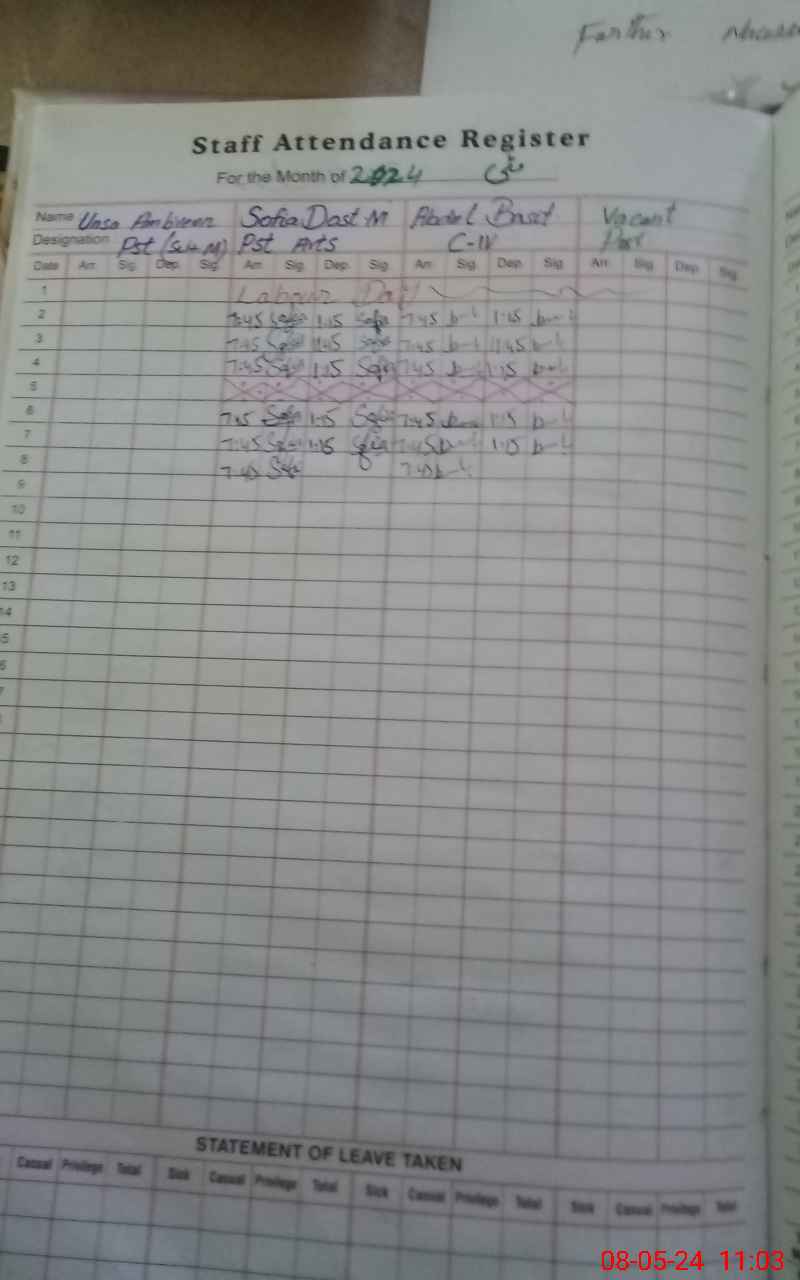 Farther
Staff Attendance Register
For the Month of 2024 مئی
Name Unsa Ambreen Sofia Dost M Abdul Basit Vacant
Designation Pst (Sci M) Pst Arts C-IV Post
Date Arr. Sig. Dep. Sig. Arr. Sig. Dep. Sig. Arr. Sig. Dep. Sig. Arr. Sig. Dep. Sig.
1 Labour Day
2 7:45 Sofia 1:15 Sofia 7:45 1:15
3 7:45 Sofia 1:45 Sofia 7:45 1:45
4 7:45 Sofia 1:15 Sofia 7:45 1:15
5
6 7:45 Sofia 1:15 Sofia 7:45 1:15
7 7:45 Sofia 1:15 Sofia 7:45 1:15
8 7:45 Sofia 7:45
9
10
11
12
13
14
5
6
7
STATEMENT OF LEAVE TAKEN
Casual Privilege Total Sick Casual Privilege Total Sick Casual Privilege Total Sick Casual Privilege Total
08-05-24 11:03